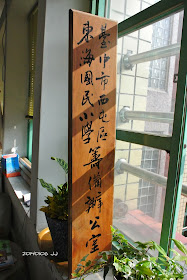 臺中市西屯區
東海國民小學籌備辦公室
ZOMBIES JJ